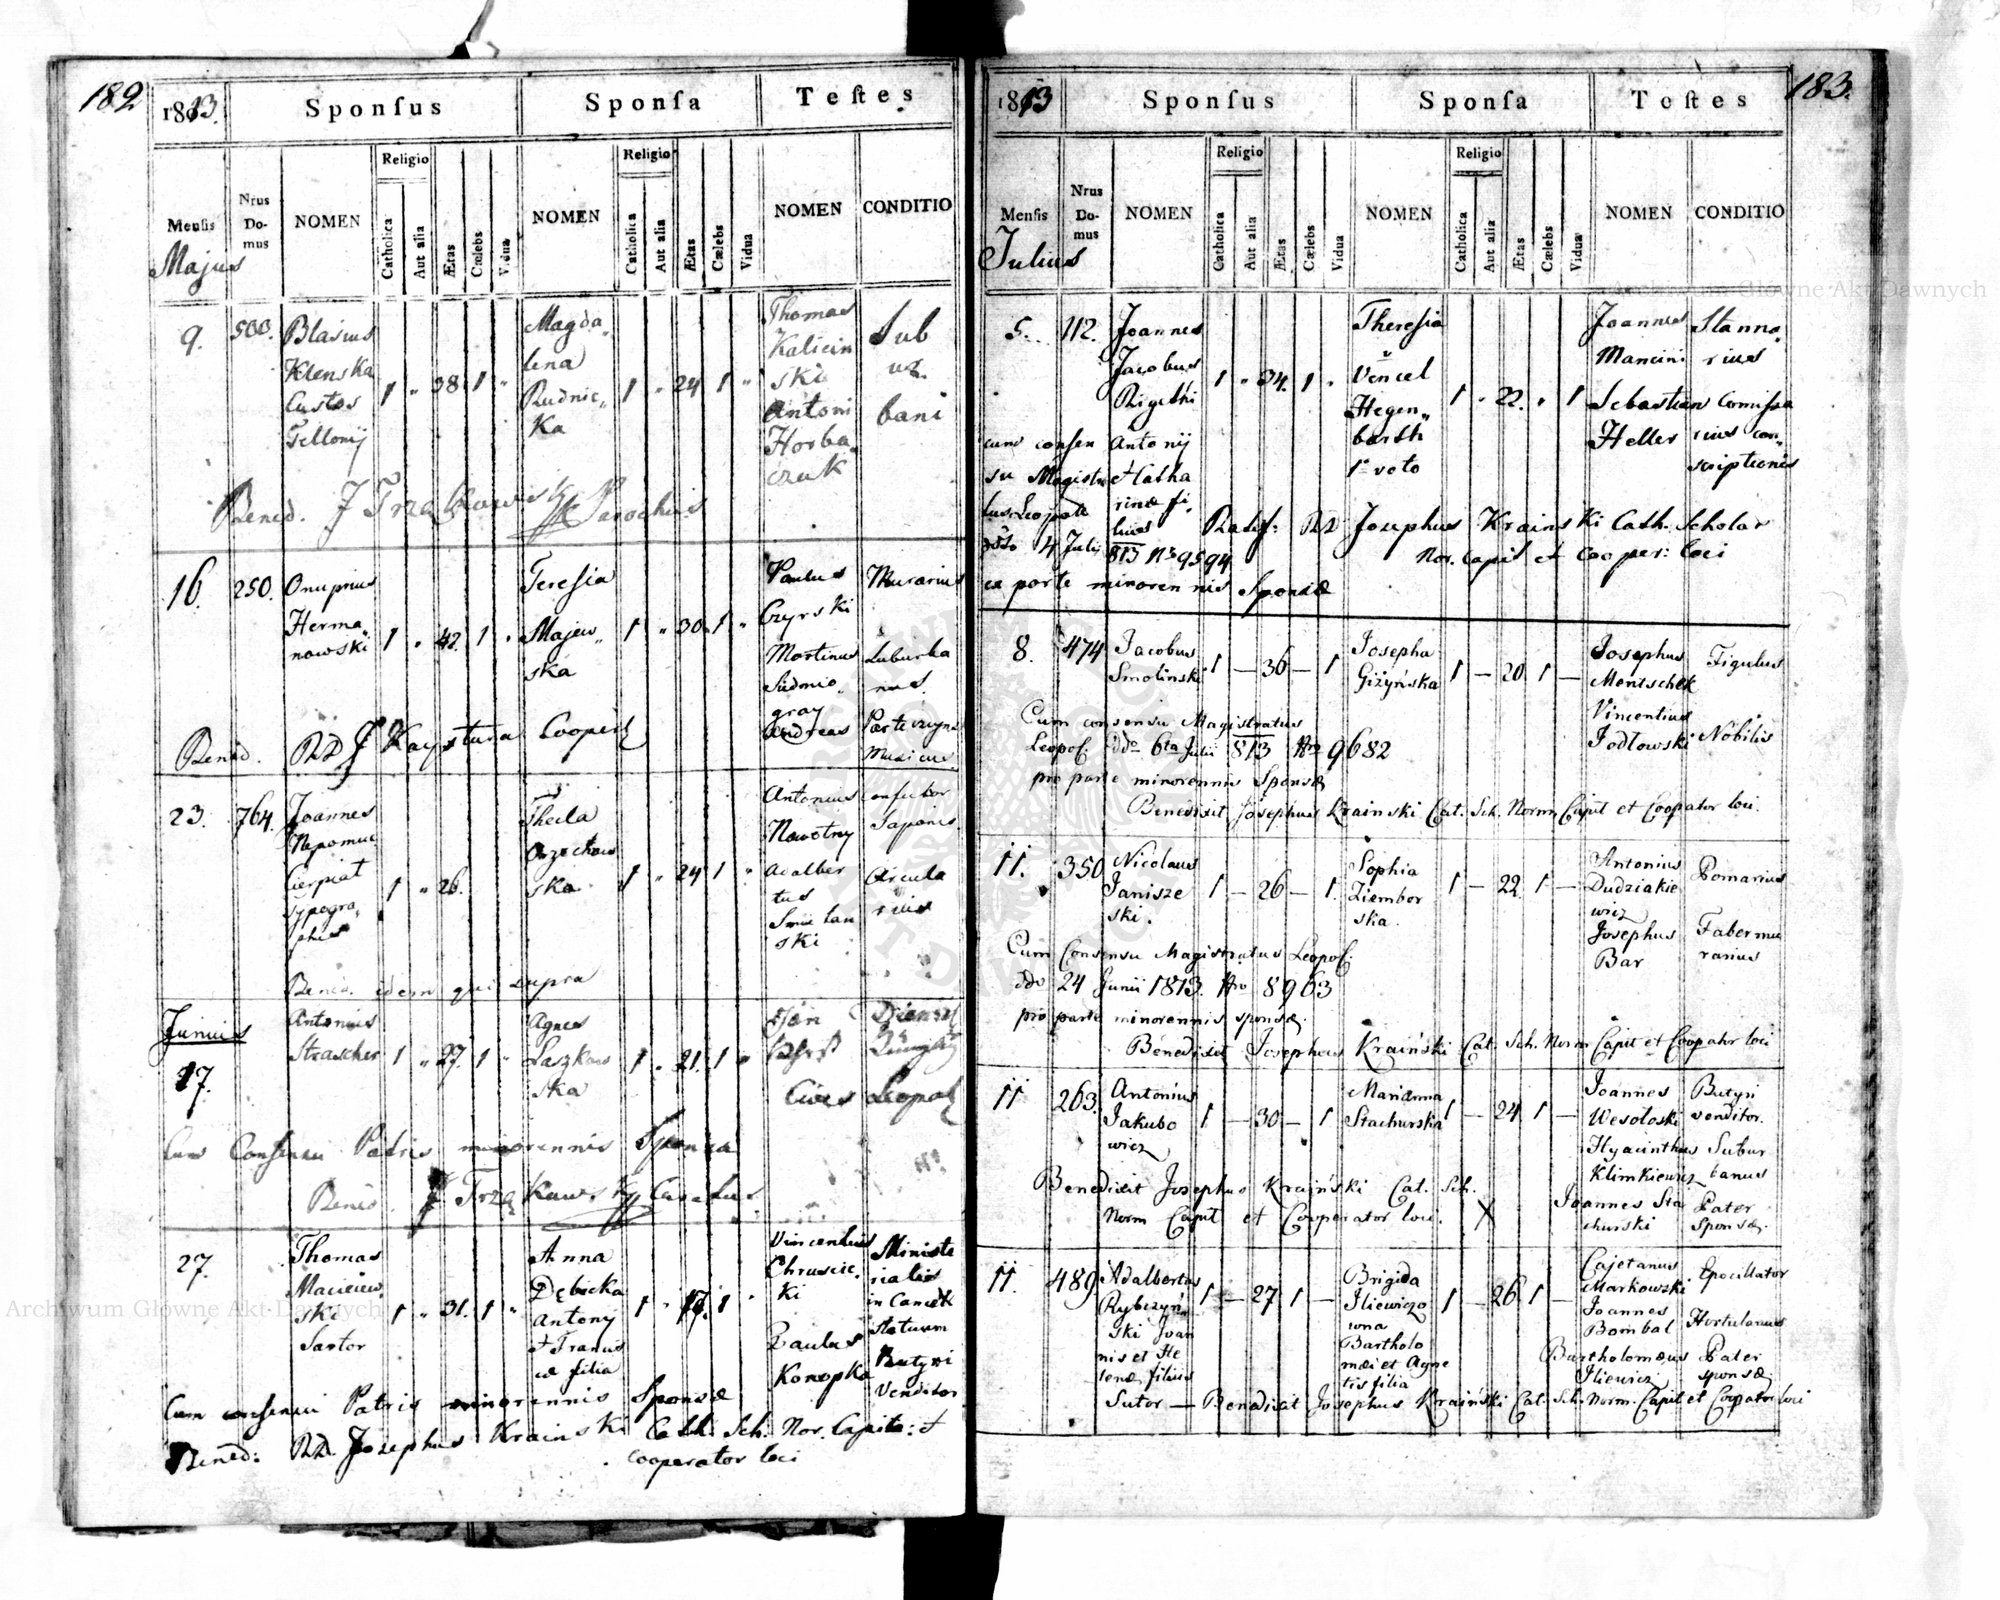 182
1813.
Sponſus
Sponſa
Teſtes
Menſis
Majus
Nrus Do-mus
NOMEN
Religio
Catholica
Aut alia
Ætas
Cælebs
Vidua
NOMEN
Religio
Catholica
Aut alia
Ætas
Cælebs
Vidua
NOMEN
CONDITIO
9. 500. Blasius
Klenska
Custos
Tellonij
1 " 38 1 "
Magda
lena
Rudnic„
Ka
1 " 24 1 "
Thomas
Kalicin
ski
Antoni
Horba
czuk
Sub
ur
bani
Bened. J Trzaskowski Parochus
16. 250. Onuprius
Herma„
nowski
1 " 42. 1 "
Teresia
Majew„
ska
1 " 30. 1 "
Paulus
Czyrski
Martinus
gray
Andreas
Murarius
Suburba
nus.
Musicus
Bened. RD J Kaystura Cooper
23. 764. Joannes
Nepomuc
Cierpiat
typogra„
phus
1 " 26.
Thecla
Orzechow
ska
1 " 24 1 "
Antonius
Nowotny
Adalber
tus
ski
Confector
Saponis
Arcula
rius
Bened. idem qui supra
Junius
17.
Antonius
Strascher
1 " 27. 1 "
Agnes
Laszkow
ska
1 " 21. 1 "
Cives Leopol
Cum Consensu Patris minorennis Sponsa
Bened. J Trzaskawski Curatus
27.
Thomas
Maciejew
ski
Sartor
1 " 31. 1 "
Anna
Dębicka
Antonij
et Francis
cæ filia
1 " 17. 1 "
Vincentius
Chrusic.
ki
Paulus
Konopka
Ministe
rialis
in Cancell
Statuum
Butyri
Venditor
Cum consensu Patris minorennis Sponsæ
Bened: RD. Josephus Krainski Cath. Sch. Nor. Capito: et
cooperator loci
183.
1813
Sponſus
Sponſa
Teſtes
Menſis
Julius
Nrus Do-mus
NOMEN
Religio
Catholica
Aut alia
Ætas
Cælebs
Vidua
NOMEN
Religio
Catholica
Aut alia
Ætas
Cælebs
Vidua
NOMEN
CONDITIO
5. 112. Joannes
Jacobus
Righthi
Antonij
et Catha
rinæ fi„
lius
1 " 34. 1 "
Theresia
Vencel
Hegen„
barth
1º voto
1 " 22. " 1
Joannes
Mancini
Sebastian
Heller
Stanna„
rius
Comissa
rius con„
scriptionis
cum consen
su Magistra
tus Leopoli
ddto 4 Julij
813 No 9594
ex parte minorennis Sponsæ
Ratif: RD Josephus Krainski Cath. Scholar
Nor. Capit et Cooper: loci
8. 474 Jacobus
Smolinski
1 — 36 — 1
Josepha
Giżyńska
1 — 20. 1 —
Josephus
Mentschek
Vincentius
Jodłowski
Figulus
Nobilis
Cum consensu Magistratus
Leopol. ddo 6ta Julii 813 Nro 9682
pro parte minorennis Sponsæ
Benedixit Josephus Krainski Cat. Sch. Norm Capit et Cooperator loci.
11. 350 Nicolaus
Janisze
ski.
1 — 26 — 1.
Sophia
Ziembor
ska.
1 — 22. 1 —
Antonius
Dudziakie
wicz
Josephus
Bar
Pomarius
Faber mu
rarius
Cum Consensu Magistratus Leopol.
ddo 24 Junii 1813. Nro 8963
pro parte minorennis sponsæ.
Benedixit Josephus Kraiński Cat. Sch. Norm Capit et Cooperator loci
11 263. Antonius
Jakubo
wicz
1 — 30 — 1
Marianna
Stachurska
1 — 24. 1 —
Joannes
Wesołoski
Hyacinthus
Klimkiewicz
Joannes Sta
churski
Butyri
venditor.
Subur
banus
Pater
Sponsæ.
Benedixit Josephus Kraiński Cat. Sch.
Norm Capit et Cooperator loci. X
11. 489. Adalbertus
Rybczyń
ski Joan
nis et He
lenæ filius
Sutor
1 — 27 1 —
Brigida
Iliewiczo
wna
Bartholo
mæi et Agne
tis filia
1 — 26 1 —
Cajetanus
Markowski
Joannes
Bombal
Bartholomæus
Iliewicz
Epocillator
Hortulanus
Pater
sponsæ
— Benedixit Josephus Kraiński Cat. Sch. Norm. Capit et Cooperator loci
Archiwum Główne Akt Dawnych
Archiwum Główne Akt Dawnych